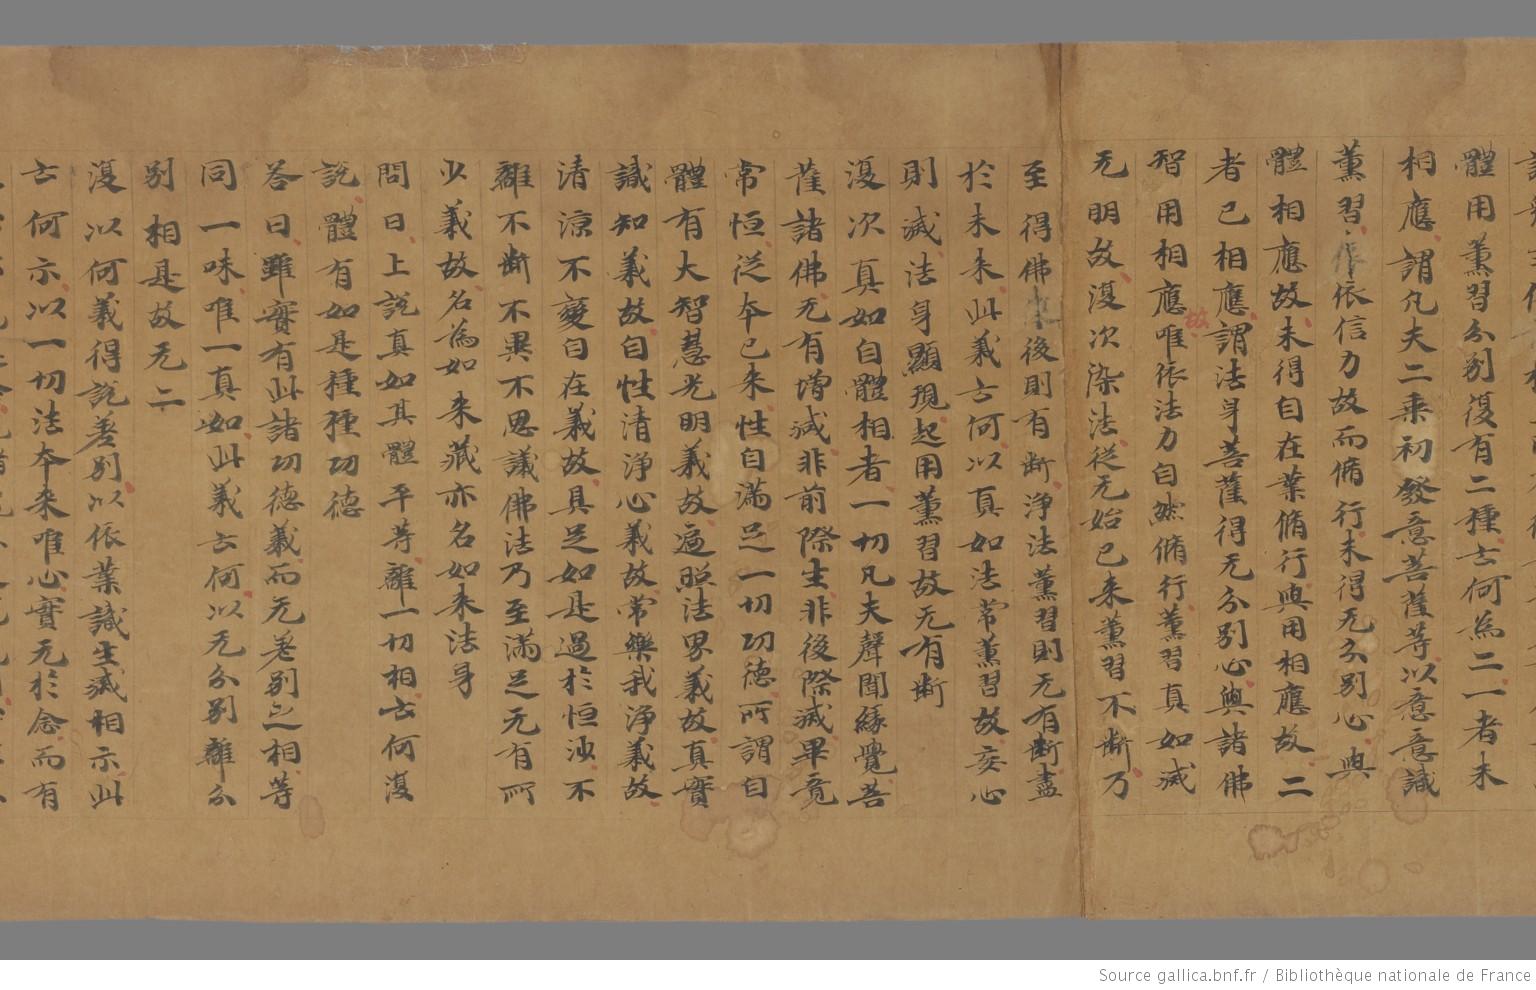 體用薰習分別復有二種云何為二一者未
相應謂凡夫二乘初發意菩薩等以意意識
薰習依信力故而脩行未得无分別心與
體相應故未得自在業脩行與用相應故二
者已相應謂法身菩薩得无分別心與諸佛
智用相應故唯依法力自然脩行薰習真如滅
无明故復次染法從无始已來薰習不斷乃
至得佛後則有斷淨法薰習則无有斷盡
於未來此義云何以真如法常薰習故妄心
則滅法身顯現起用薰習故无有斷
復次真如自體相者一切凡夫聲聞緣覺菩
薩諸佛无有增減非前際生非後際滅畢竟
常恒從本已來性自滿足一切功德所謂自
體有大智慧光明義故遍照法界義故真實
識知義故自性清淨心義故常樂我淨義故
清涼不變自在義故具足如是過於恒沙不
離不斷不異不思議佛法乃至滿足无有所
少義故名為如來藏亦名如來法身
問曰上說真如其體平等離一切相云何復
說體有如是種種功德
答曰雖實有此諸功德義而无差別之相等
同一味唯一真如此義云何以无分別離分
別相是故无二
復以何義得說差別以依業識生滅相示此
云何示以一切法本來唯心實无於念而有
Source gallica.bnf.fr / Bibliothèque nationale de France